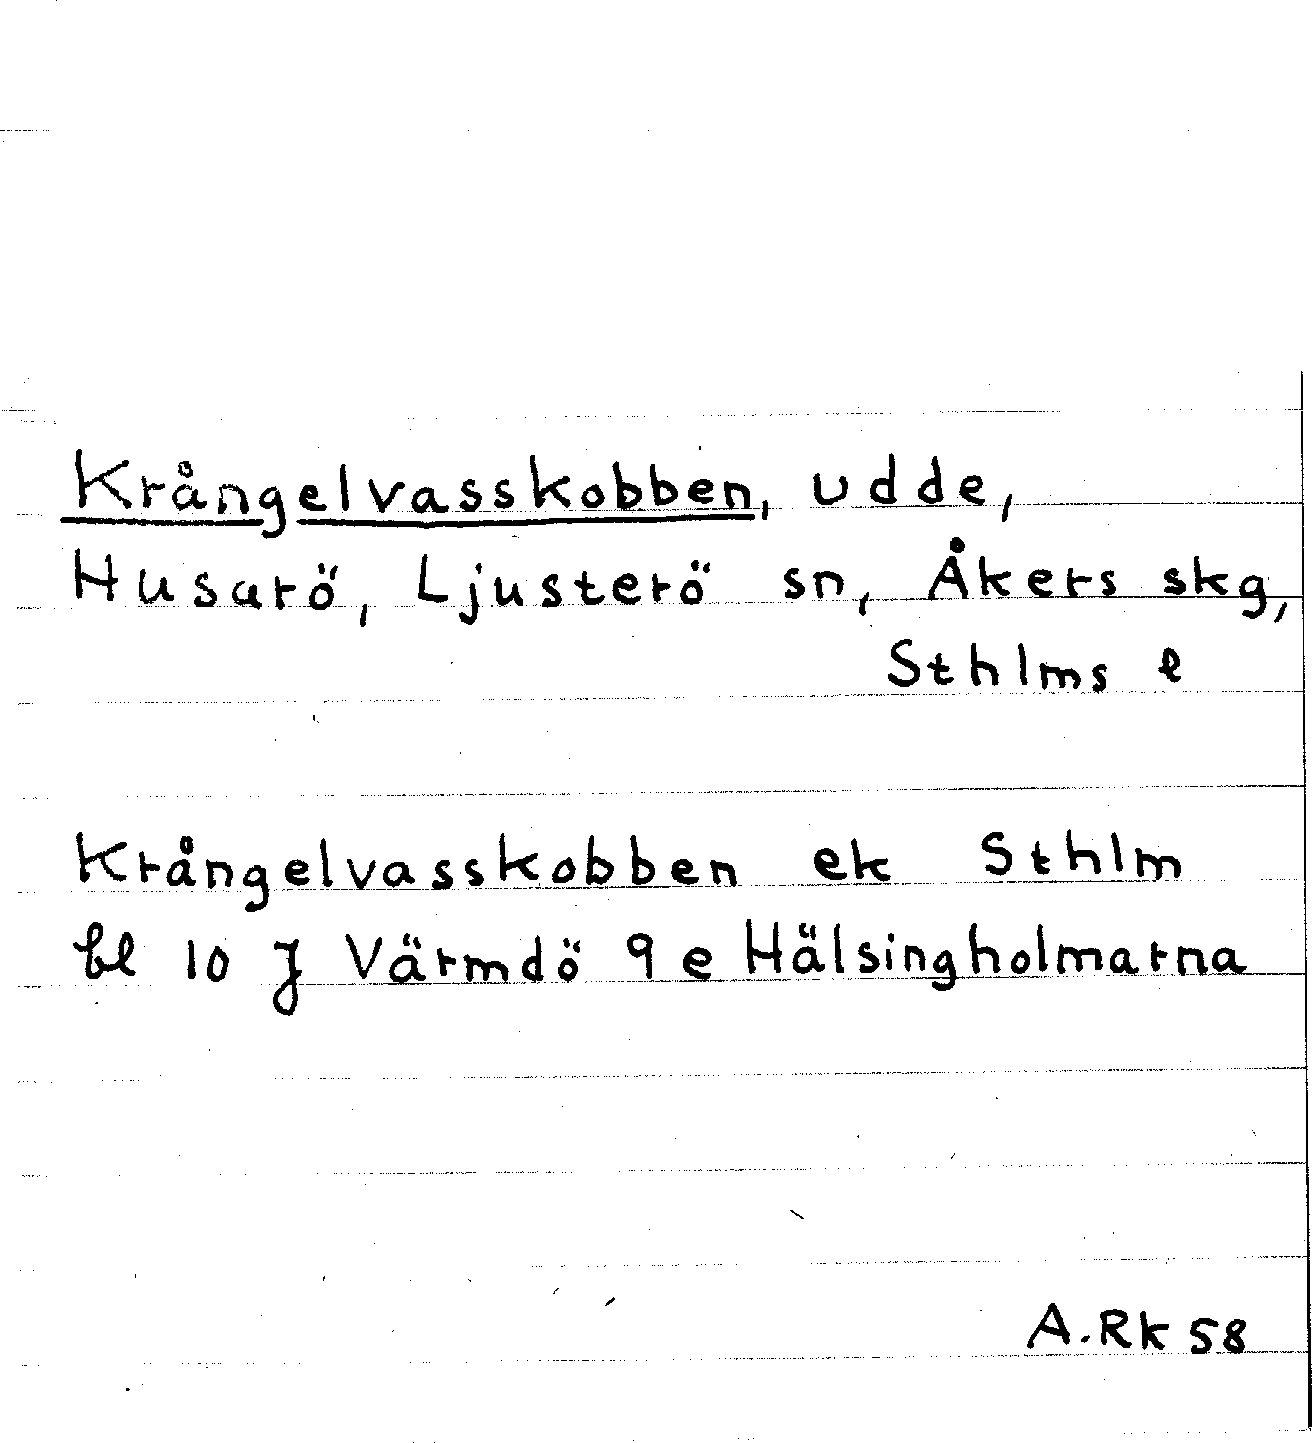 Krångelvasskobben, udde,
Husarö, Ljusterö sn, Åkers skg,
Sthlms l
Krångelvasskobben ek Sthlm
bl 10 J Värmdö 9 e Hälsingholmarna
A.Rk 58